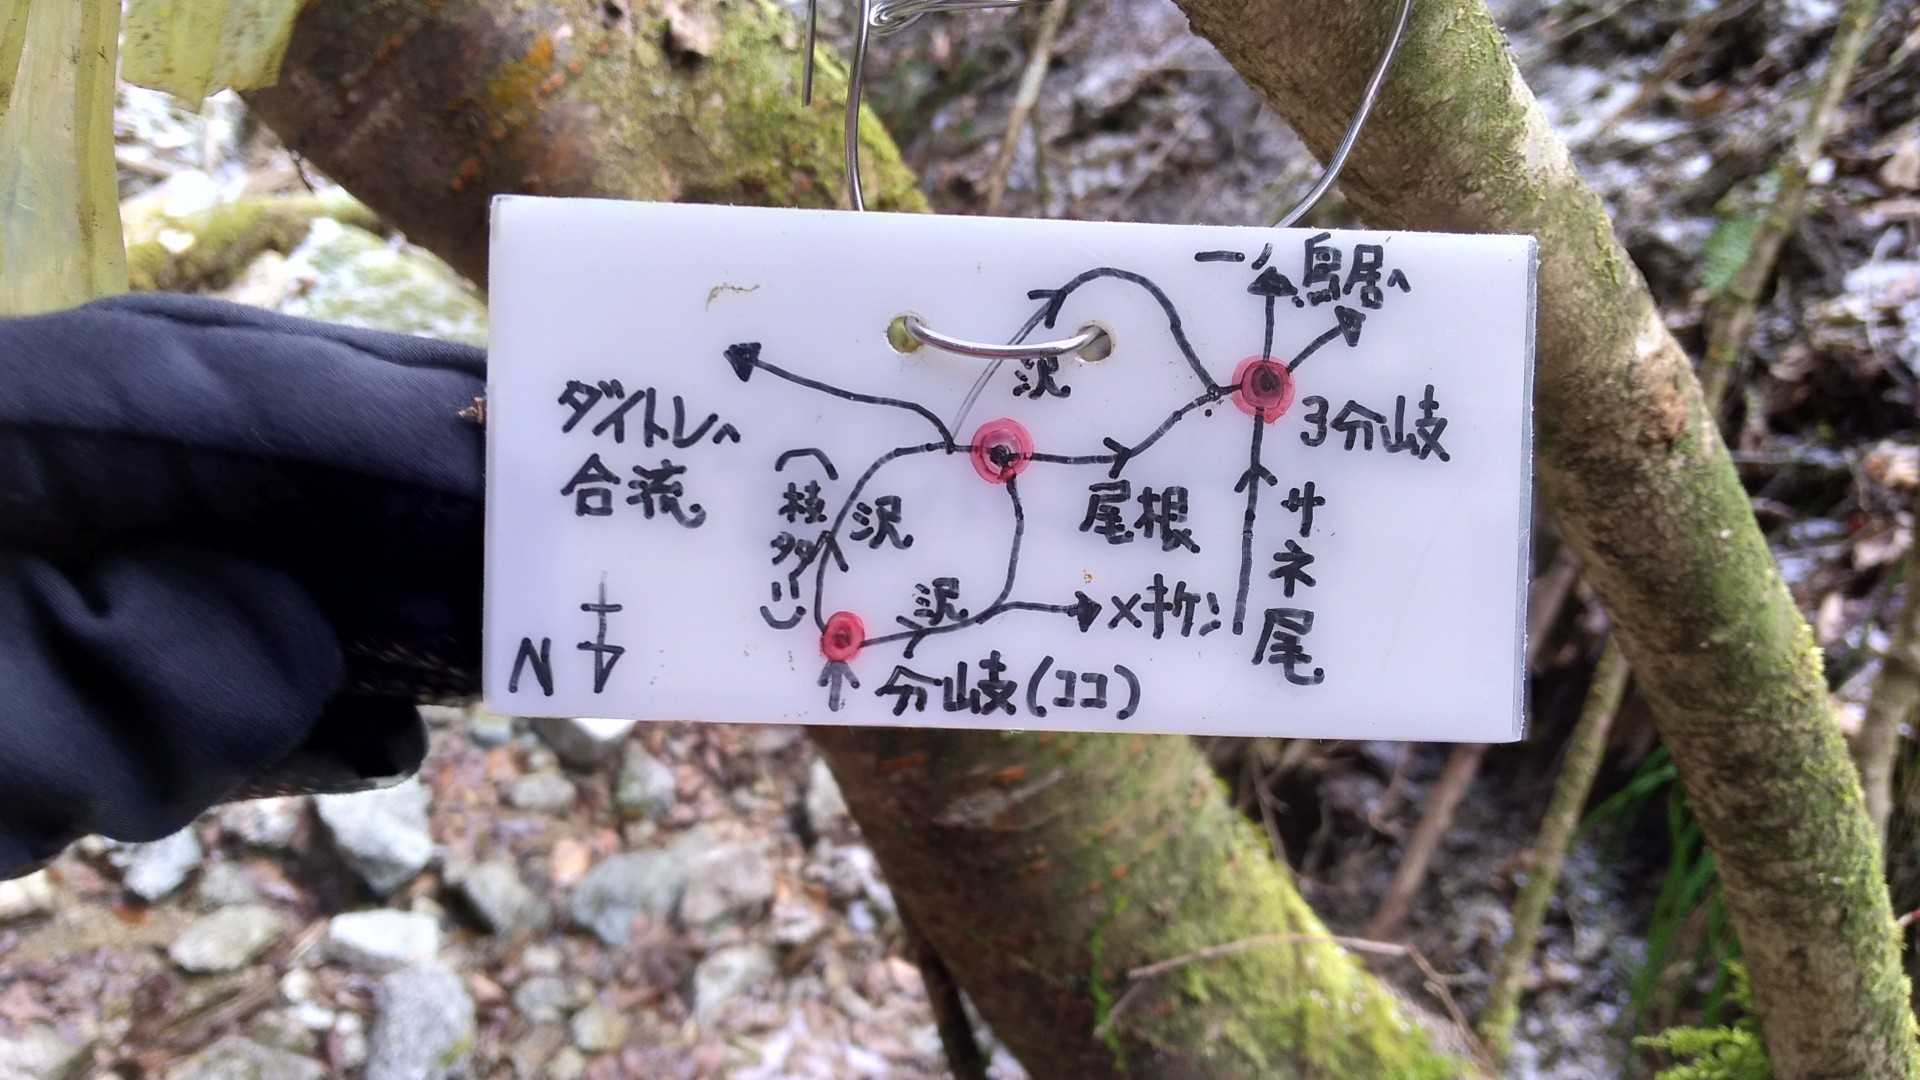 一ノ鳥居へ
沢
ダイトレへ
合流
3分岐
(枝
沢
尾根
サネ尾
沢
×キケン
N
分岐(ココ)